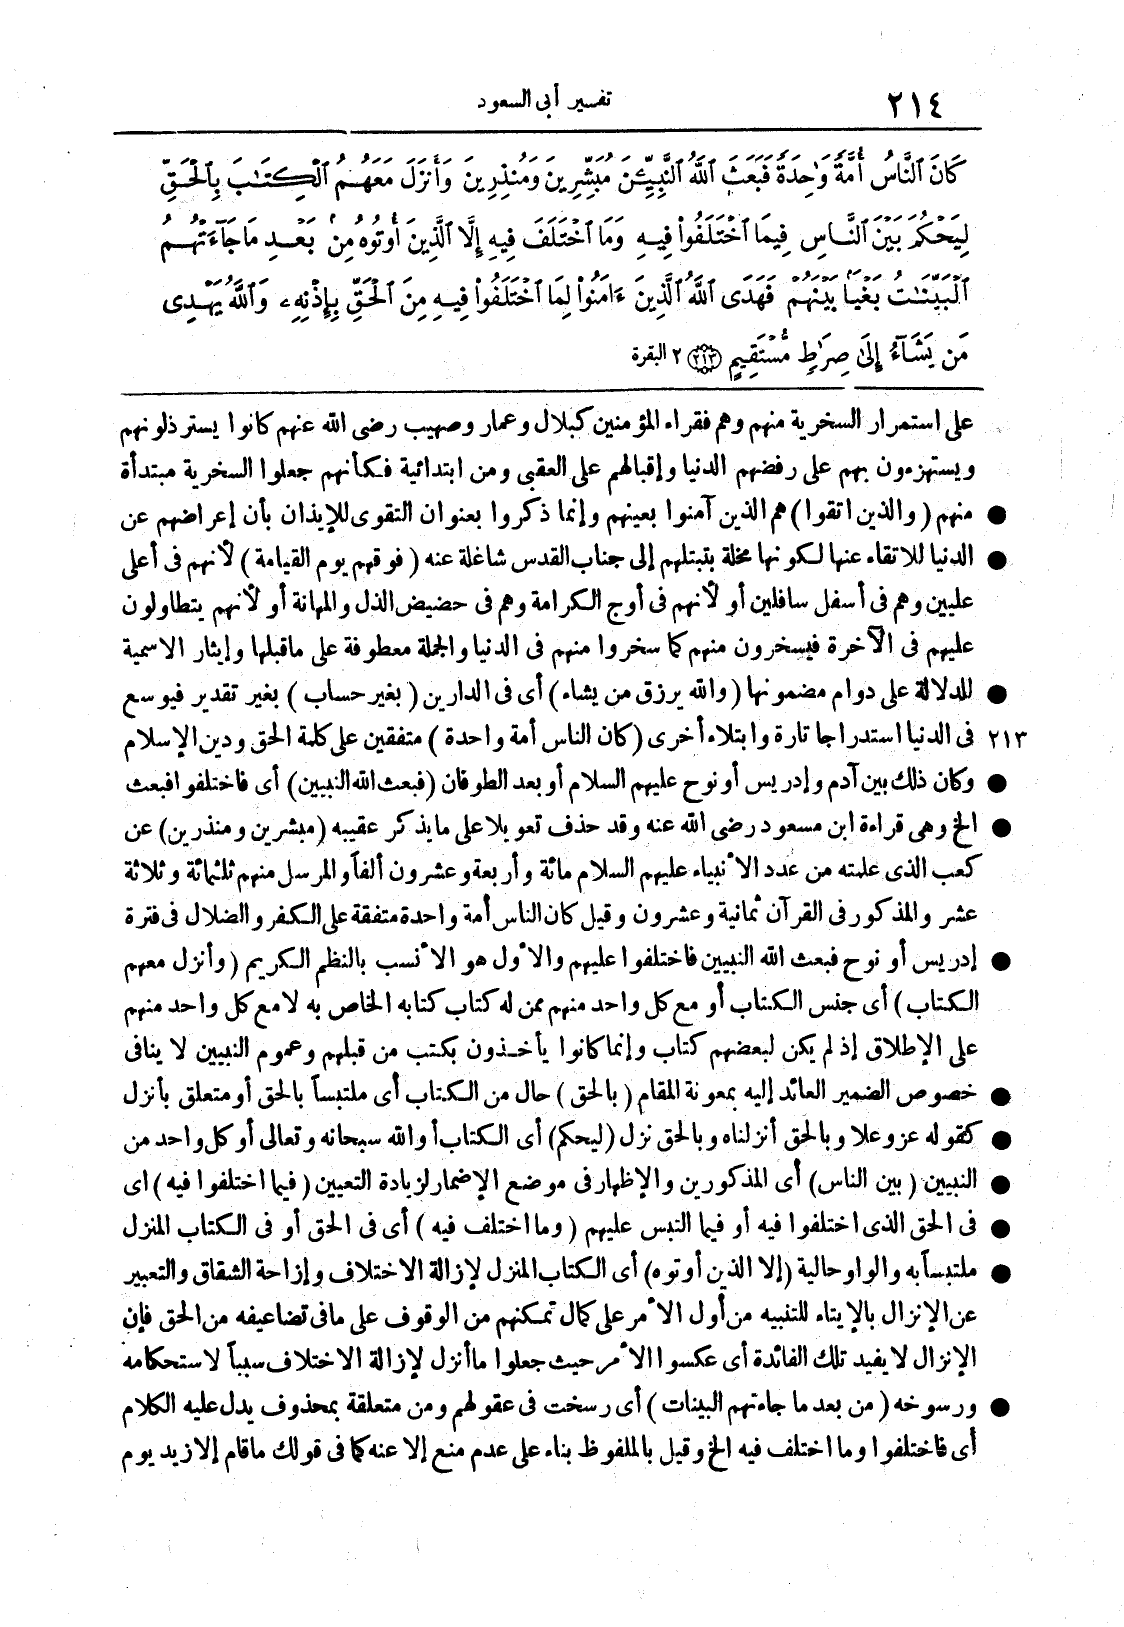 ٢١٤
تفسير أبى السعود
كَانَ ٱلنَّاسُ أُمَّةً وَٰحِدَةً فَبَعَثَ ٱللَّهُ ٱلنَّبِيِّـۧنَ مُبَشِّرِينَ وَمُنذِرِينَ وَأَنزَلَ مَعَهُمُ ٱلْكِتَٰبَ بِٱلْحَقِّ
لِيَحْكُمَ بَيْنَ ٱلنَّاسِ فِيمَا ٱخْتَلَفُوا۟ فِيهِ وَمَا ٱخْتَلَفَ فِيهِ إِلَّا ٱلَّذِينَ أُوتُوهُ مِنۢ بَعْدِ مَا جَآءَتْهُمُ
ٱلْبَيِّنَٰتُ بَغْيًۢا بَيْنَهُمْ فَهَدَى ٱللَّهُ ٱلَّذِينَ ءَامَنُوا۟ لِمَا ٱخْتَلَفُوا۟ فِيهِ مِنَ ٱلْحَقِّ بِإِذْنِهِۦ وَٱللَّهُ يَهْدِى
مَن يَشَآءُ إِلَىٰ صِرَٰطٍ مُّسْتَقِيمٍ ﴿٢١٣﴾ ٢ البقرة
على استمرار السخرية منهم وهم فقراء المؤمنين كبلال وعمار وصهيب رضى الله عنهم كانوا يسترذلونهم
ويستهزءون بهم على رفضهم الدنيا وإقبالهم على العقبى ومن ابتدائية فكأنهم جعلوا السخرية مبتدأة
● منهم (والذين اتقوا) هم الذين آمنوا بعينهم وإنما ذكروا بعنوان التقوى للإيذان بأن إعراضهم عن
● الدنيا للاتقاء عنها لكونها مخلة بتبتلهم إلى جناب القدس شاغلة عنه (فوقهم يوم القيامة) لأنهم فى أعلى
عليين وهم فى أسفل سافلين أو لأنهم فى أوج الكرامة وهم فى حضيض الذل والمهانة أو لأنهم يتطاولون
عليهم فى الآخرة فيسخرون منهم كما سخروا منهم فى الدنيا والجملة معطوفة على ماقبلها وإيثار الاسمية
● للدلالة على دوام مضمونها (والله يرزق من يشاء) أى فى الدارين (بغير حساب) بغير تقدير فيوسع
٢١٣ فى الدنيا استدراجا تارة وابتلاء أخرى (كان الناس أمة واحدة) متفقين على كلمة الحق ودين الإسلام
● وكان ذلك بين آدم وإدريس أو نوح عليهم السلام أو بعد الطوفان (فبعث الله النبيين) أى فاختلفوا فبعث
● الخ وهى قراءة ابن مسعود رضى الله عنه وقد حذف تعويلا على ما يذكر عقيبه (مبشرين ومنذرين) عن
كعب الذى علمته من عدد الأنبياء عليهم السلام مائة وأربعة وعشرون ألفاً والمرسل منهم ثلثمائة وثلاثة
عشر والمذكور فى القرآن ثمانية وعشرون وقيل كان الناس أمة واحدة متفقة على الكفر والضلال فى فترة
● إدريس أو نوح فبعث الله النبيين فاختلفوا عليهم والأول هو الأنسب بالنظم الكريم (وأنزل معهم
الكتاب) أى جنس الكتاب أو مع كل واحد منهم ممن له كتاب كتابه الخاص به لا مع كل واحد منهم
على الإطلاق إذ لم يكن لبعضهم كتاب وإنما كانوا يأخذون بكتب من قبلهم وعموم النبيين لا ينافى
● خصوص الضمير العائد إليه بمعونة المقام (بالحق) حال من الكتاب أى ملتبساً بالحق أو متعلق بأنزل
● كقوله عزوعلا وبالحق أنزلناه وبالحق نزل (ليحكم) أى الكتاب أو الله سبحانه وتعالى أو كل واحد من
● النبيين (بين الناس) أى المذكورين والإظهار فى موضع الإضمار لزيادة التعيين (فيما اختلفوا فيه) اى
● فى الحق الذى اختلفوا فيه أو فيما التبس عليهم (وما اختلف فيه) أى فى الحق أو فى الكتاب المنزل
● ملتبسا به والواو حالية (إلا الذين أوتوه) أى الكتاب المنزل لإزالة الاختلاف وإزاحة الشقاق والتعبير
عن الإنزال بالإيتاء للتنبيه من أول الأمر على كمال تمكنهم من الوقوف على مافى تضاعيفه من الحق فإن
الإنزال لا يفيد تلك الفائدة أى عكسوا الأمر حيث جعلوا ما أنزل لإزالة الاختلاف سبباً لاستحكامه
● ورسوخه (من بعد ما جاءتهم البينات) أى رسخت فى عقولهم ومن متعلقة بمحذوف يدل عليه الكلام
أى فاختلفوا وما اختلف فيه الخ وقيل بالملفوظ بناء على عدم منع إلا عنه كما فى قولك ماقام إلا زيد يوم